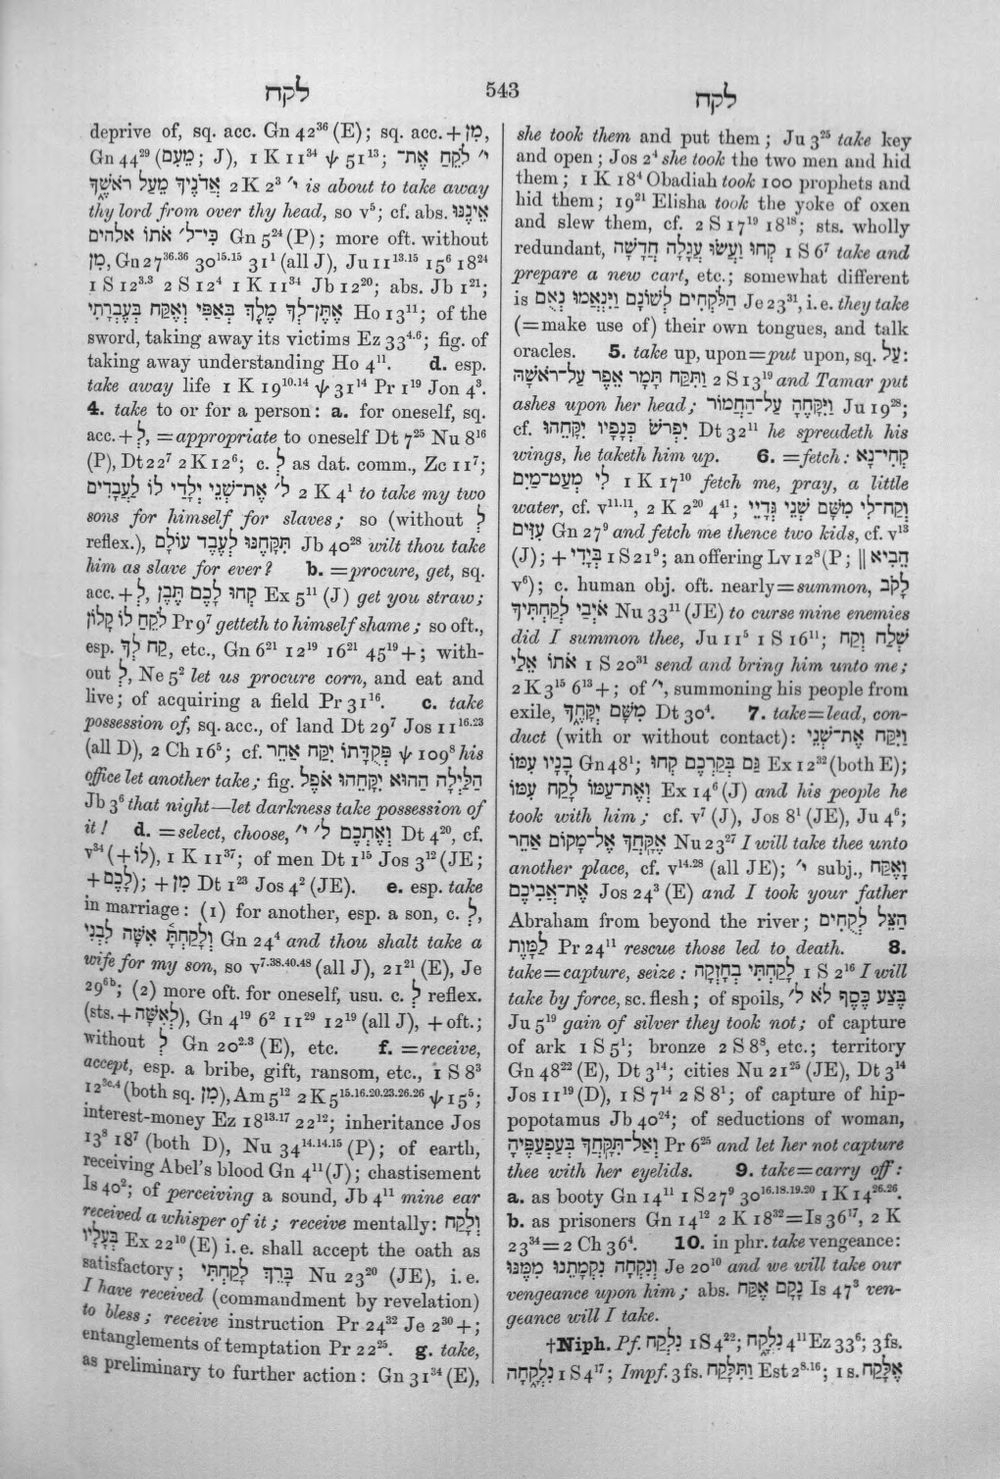 לקח
543
לקח
deprive of, sq. acc. Gn 42³⁶ (E); sq. acc. + מִן,
Gn 44²⁹ (מֵעִם; J), 1 K 11³⁴ ψ 51¹³; י׳ לֹקֵחַ אֶת־
אֲדֹנֶיךָ מֵעַל רֹאשֶׁךָ 2 K 2³ י׳ is about to take away
thy lord from over thy head, so v⁵; cf. abs. אֵינֶנּוּ
כִּי־ל׳ אֹתוֹ אלהים Gn 5²⁴ (P); more oft. without
מִן, Gn 27³⁶·³⁶ 30¹⁵·¹⁵ 31¹ (all J), Ju 11¹³·¹⁵ 15⁶ 18²⁴
1 S 12³·³ 2 S 12⁴ 1 K 11³⁴ Jb 12²⁰; abs. Jb 1²¹;
אֶתֶּן־לְךָ מֶלֶךְ בְּאַפִּי וְאֶקַּח בְּעֶבְרָתִי Ho 13¹¹; of the
sword, taking away its victims Ez 33⁴·⁶; fig. of
taking away understanding Ho 4¹¹. d. esp.
take away life 1 K 19¹⁰·¹⁴ ψ 31¹⁴ Pr 1¹⁹ Jon 4³.
4. take to or for a person: a. for oneself, sq.
acc. + לְ, = appropriate to oneself Dt 7²⁵ Nu 8¹⁶
(P), Dt 22⁷ 2 K 12⁶; c. לְ as dat. comm., Zc 11⁷;
ל׳ אֶת־שְׁנֵי יְלָדַי לוֹ לַעֲבָדִים 2 K 4¹ to take my two
sons for himself for slaves; so (without לְ
reflex.), תִּקָּחֶנּוּ לְעֶבֶד עוֹלָם Jb 40²⁸ wilt thou take
him as slave for ever? b. = procure, get, sq.
acc. + לְ, קְחוּ לָכֶם תֶּבֶן Ex 5¹¹ (J) get you straw;
לֹקֵחַ לוֹ קָלוֹן Pr 9⁷ getteth to himself shame; so oft.,
esp. קַח לְךָ, etc., Gn 6²¹ 12¹⁹ 16²¹ 45¹⁹ +; with-
out לְ, Ne 5² let us procure corn, and eat and
live; of acquiring a field Pr 31¹⁶. c. take
possession of, sq. acc., of land Dt 29⁷ Jos 11¹⁶·²³
(all D), 2 Ch 16⁵; cf. פְּקֻדָּתוֹ יִקַּח אַחֵר ψ 109⁸ his
office let another take; fig. הַלַּיְלָה הַהוּא יִקָּחֵהוּ אֹפֶל
Jb 3⁶ that night—let darkness take possession of
it! d. = select, choose, וְאֶתְכֶם ל׳ י׳ Dt 4²⁰, cf.
v³⁴ (+ לוֹ), 1 K 11³⁷; of men Dt 1¹⁵ Jos 3¹² (JE;
+ לָכֶם); + מִן Dt 1²³ Jos 4² (JE). e. esp. take
in marriage: (1) for another, esp. a son, c. לְ,
וְלָקַחְתָּ אִשָּׁה לִבְנִי Gn 24⁴ and thou shalt take a
wife for my son, so v⁷·³⁸·⁴⁰·⁴⁸ (all J), 21²¹ (E), Je
29⁶ᵇ; (2) more oft. for oneself, usu. c. לְ reflex.
(sts. + לְאִשָּׁה), Gn 4¹⁹ 6² 11²⁹ 12¹⁹ (all J), + oft.;
without לְ Gn 20²·³ (E), etc. f. = receive,
accept, esp. a bribe, gift, ransom, etc., 1 S 8³
12³ᶜ·⁴ (both sq. מִן), Am 5¹² 2 K 5¹⁵·¹⁶·²⁰·²³·²⁶·²⁶ ψ 15⁵;
interest-money Ez 18¹³·¹⁷ 22¹²; inheritance Jos
13⁸ 18⁷ (both D), Nu 34¹⁴·¹⁴·¹⁵ (P); of earth,
receiving Abel's blood Gn 4¹¹ (J); chastisement
Is 40²; of perceiving a sound, Jb 4¹¹ mine ear
received a whisper of it; receive mentally: וְלָקַח
בְּעָלָיו Ex 22¹⁰ (E) i.e. shall accept the oath as
satisfactory; בָּרֵךְ לָקַחְתִּי Nu 23²⁰ (JE), i.e.
I have received (commandment by revelation)
to bless; receive instruction Pr 24³² Je 2³⁰ +;
entanglements of temptation Pr 22²⁵. g. take,
as preliminary to further action: Gn 31³⁴ (E),
she took them and put them; Ju 3²⁵ take key
and open; Jos 2⁴ she took the two men and hid
them; 1 K 18⁴ Obadiah took 100 prophets and
hid them; 19²¹ Elisha took the yoke of oxen
and slew them, cf. 2 S 17¹⁹ 18¹⁸; sts. wholly
redundant, קְחוּ וַעֲשׂוּ עֲגָלָה חֲדָשָׁה 1 S 6⁷ take and
prepare a new cart, etc.; somewhat different
is הַלֹּקְחִים לְשׁוֹנָם וַיִּנְאֲמוּ נְאֻם Je 23³¹, i.e. they take
(= make use of) their own tongues, and talk
oracles. 5. take up, upon = put upon, sq. עַל:
וַתִּקַּח תָּמָר אֵפֶר עַל־רֹאשָׁהּ 2 S 13¹⁹ and Tamar put
ashes upon her head; וַיִּקָּחֶהָ עַל־הַחֲמוֹר Ju 19²⁸;
cf. יִפְרֹשׂ כְּנָפָיו יִקָּחֵהוּ Dt 32¹¹ he spreadeth his
wings, he taketh him up. 6. = fetch: קְחִי־נָא
לִי מְעַט־מַיִם 1 K 17¹⁰ fetch me, pray, a little
water, cf. v¹¹·¹¹, 2 K 2²⁰ 4⁴¹; וְקַח־לִי מִשָּׁם שְׁנֵי גְּדָיֵי
עִזִּים Gn 27⁹ and fetch me thence two kids, cf. v¹³
(J); + בְּיָדִי 1 S 21⁹; an offering Lv 12⁸ (P; ‖ הֵבִיא
v⁶); c. human obj. oft. nearly = summon, לָקֹב
אֹיְבַי לְקַחְתִּיךָ Nu 33¹¹ (JE) to curse mine enemies
did I summon thee, Ju 11⁵ 1 S 16¹¹; שְׁלַח וְקַח
אֹתוֹ אֵלַי 1 S 20³¹ send and bring him unto me;
2 K 3¹⁵ 6¹³ +; of י׳, summoning his people from
exile, מִשָּׁם יִקָּחֶךָ Dt 30⁴. 7. take = lead, con-
duct (with or without contact): וַיִּקַּח אֶת־שְׁנֵי
בָנָיו עִמּוֹ Gn 48¹; גַּם בְּקַרְכֶם קְחוּ Ex 12³² (both E);
וְאֶת־עַמּוֹ לָקַח עִמּוֹ Ex 14⁶ (J) and his people he
took with him; cf. v⁷ (J), Jos 8¹ (JE), Ju 4⁶;
אֶקָּחֲךָ אֶל־מָקוֹם אַחֵר Nu 23²⁷ I will take thee unto
another place, cf. v¹⁴·²⁸ (all JE); י׳ subj., וָאֶקַּח
אֶת־אֲבִיכֶם Jos 24³ (E) and I took your father
Abraham from beyond the river; הַצֵּל לְקֻחִים
לַמָּוֶת Pr 24¹¹ rescue those led to death. 8.
take = capture, seize: לָקַחְתִּי בְחָזְקָה 1 S 2¹⁶ I will
take by force, sc. flesh; of spoils, בֶּצַע כֶּסֶף לֹא ל׳
Ju 5¹⁹ gain of silver they took not; of capture
of ark 1 S 5¹; bronze 2 S 8⁸, etc.; territory
Gn 48²² (E), Dt 3¹⁴; cities Nu 21²⁵ (JE), Dt 3¹⁴
Jos 11¹⁹ (D), 1 S 7¹⁴ 2 S 8¹; of capture of hip-
popotamus Jb 40²⁴; of seductions of woman,
וְאַל־תִּקָּחֲךָ בְּעַפְעַפֶּיהָ Pr 6²⁵ and let her not capture
thee with her eyelids. 9. take = carry off:
a. as booty Gn 14¹¹ 1 S 27⁹ 30¹⁶·¹⁸·¹⁹·²⁰ 1 K 14²⁶·²⁶.
b. as prisoners Gn 14¹² 2 K 18³² = Is 36¹⁷, 2 K
23³⁴ = 2 Ch 36⁴. 10. in phr. take vengeance:
וְנִקְחָה נִקְמָתֵנוּ מִמֶּנּוּ Je 20¹⁰ and we will take our
vengeance upon him; abs. נָקָם אֶקָּח Is 47³ ven-
geance will I take.
†Niph. Pf. נִלְקַח 1 S 4²²; נִלְקָח 4¹¹ Ez 33⁶; 3 fs.
נִלְקָחָה 1 S 4¹⁷; Impf. 3 fs. וַתִּלָּקַח Est 2⁸·¹⁶; 1 s. אֶלָּקַח